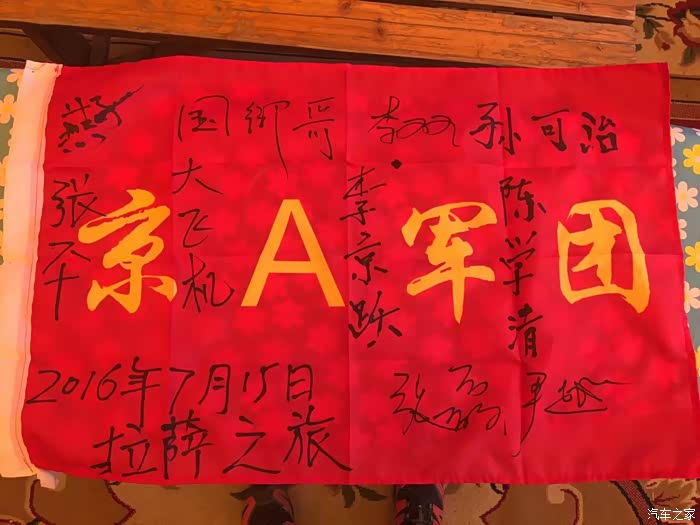 国卿哥 李双双 孙可治
张平
大飞机
李京跃
陈学清
京A军团
2016年7月15日
拉萨之旅
张磊
尹超
汽车之家